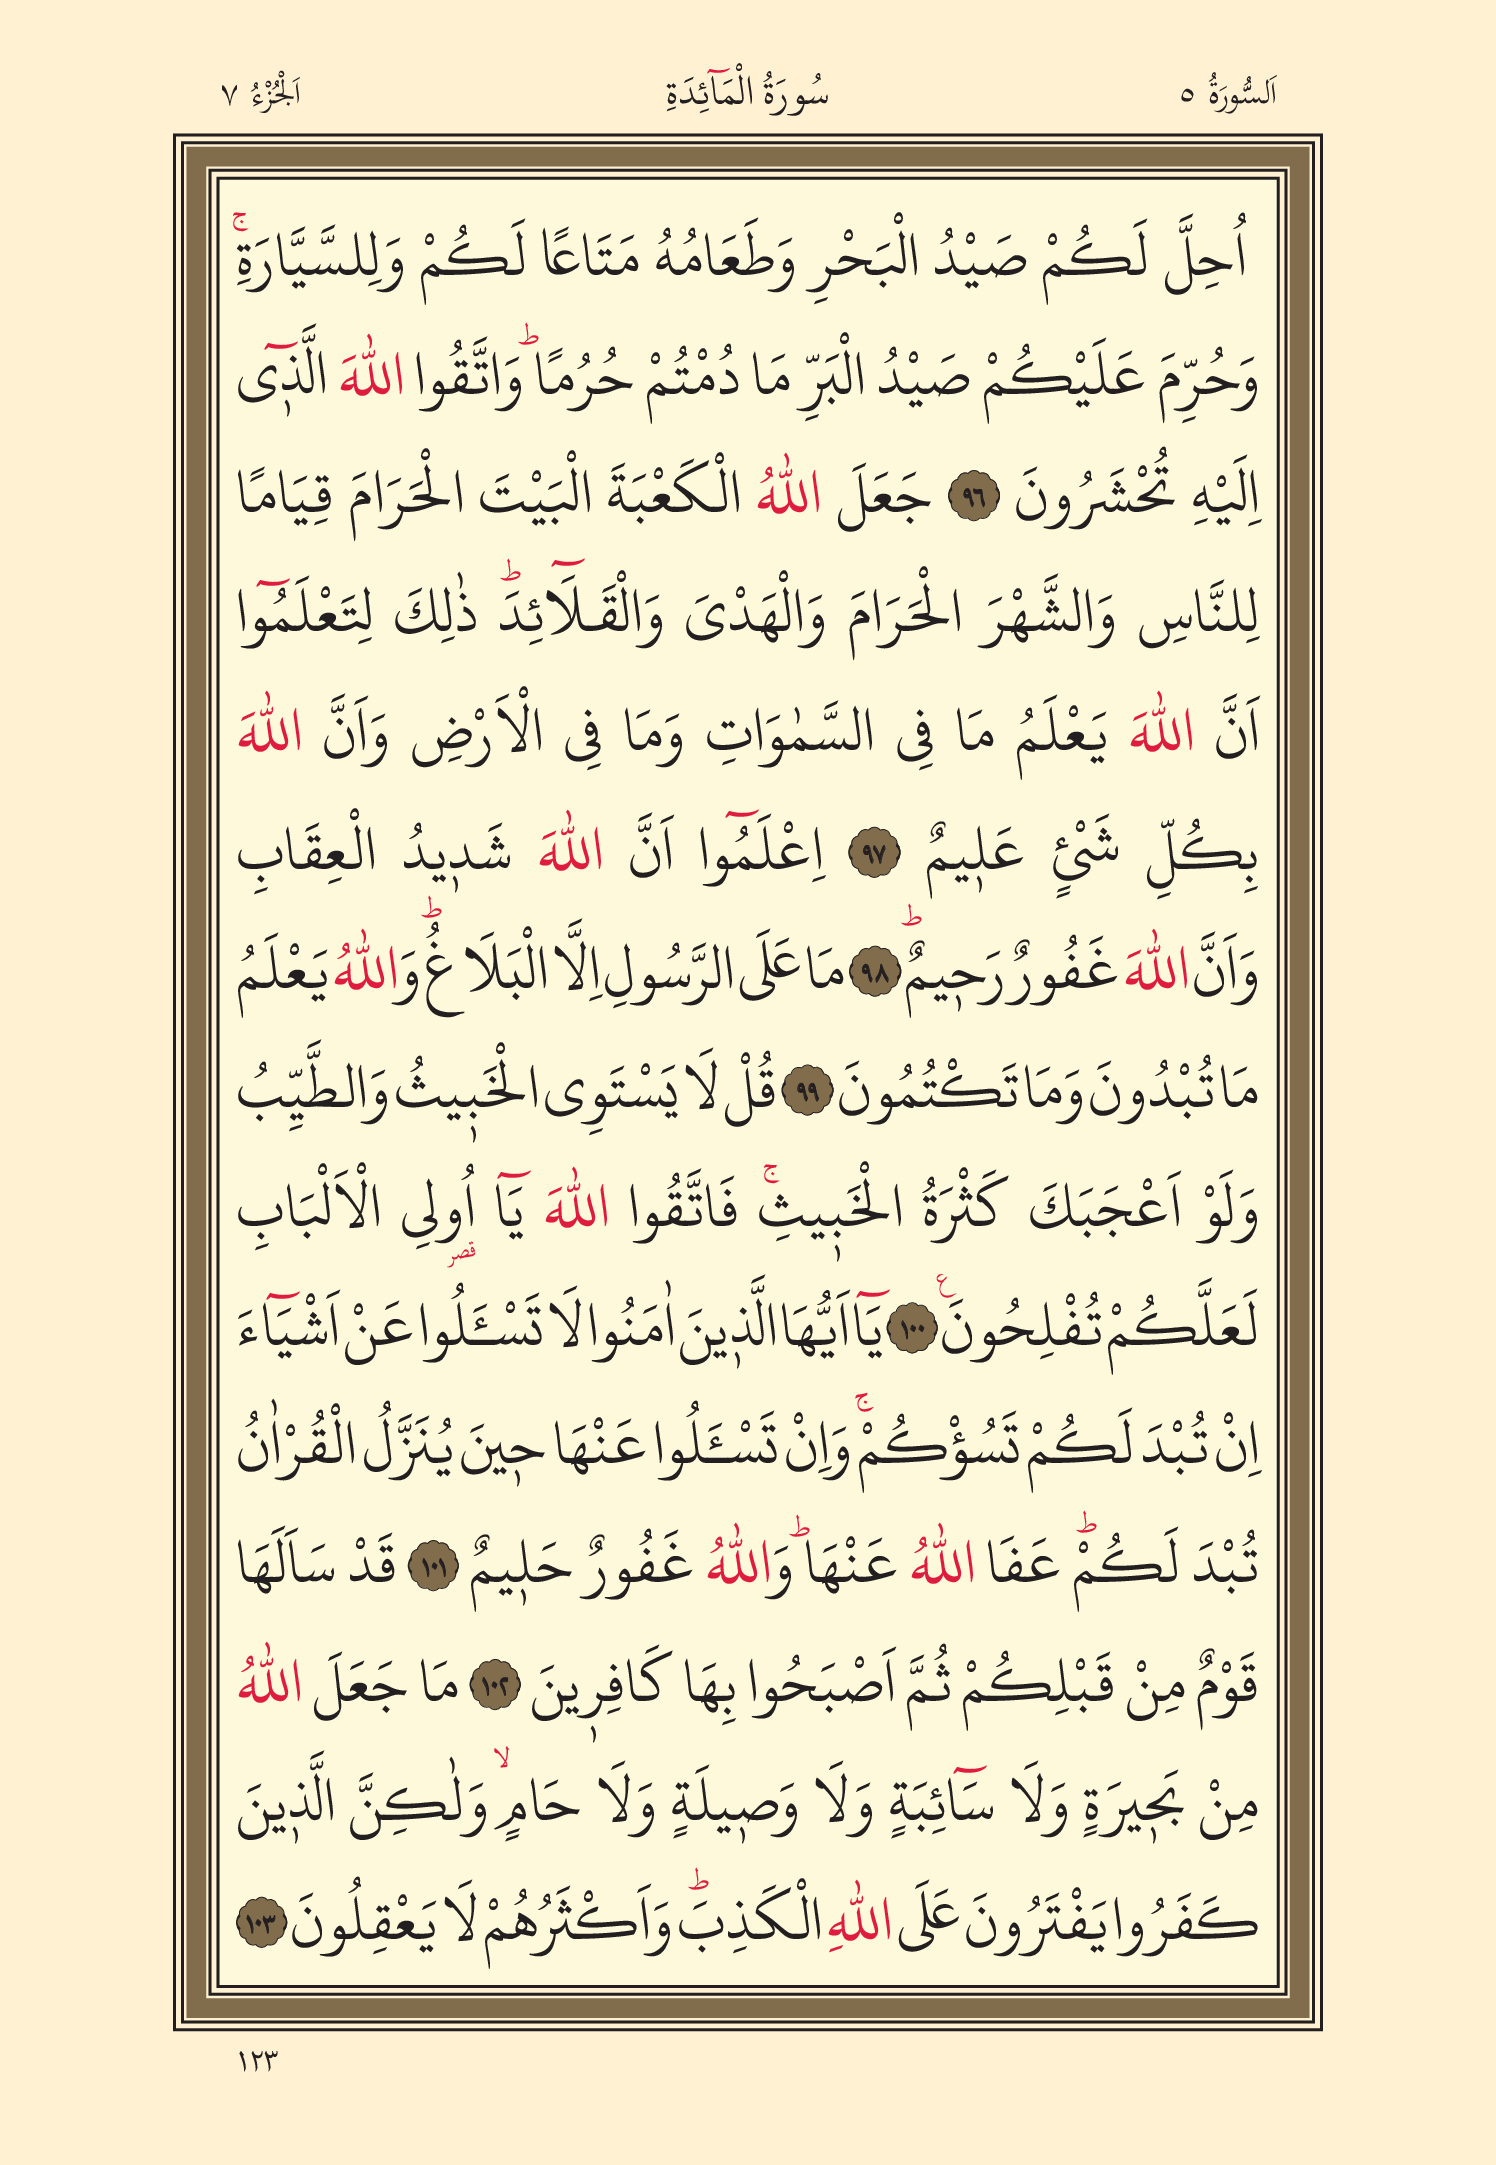 اَلسُّورَةُ ٥ سُورَةُ الْمَٓائِدَةِ اَلْجُزْءُ ٧
اُحِلَّ لَكُمْ صَيْدُ الْبَحْرِ وَطَعَامُهُ مَتَاعًا لَكُمْ وَلِلسَّيَّارَةِۚ
وَحُرِّمَ عَلَيْكُمْ صَيْدُ الْبَرِّ مَا دُمْتُمْ حُرُمًاۜ وَاتَّقُوا اللّٰهَ الَّذ۪ٓى
اِلَيْهِ تُحْشَرُونَ ﴿٩٦﴾ جَعَلَ اللّٰهُ الْكَعْبَةَ الْبَيْتَ الْحَرَامَ قِيَامًا
لِلنَّاسِ وَالشَّهْرَ الْحَرَامَ وَالْهَدْىَ وَالْقَلَٓائِدَۜ ذٰلِكَ لِتَعْلَمُٓوا
اَنَّ اللّٰهَ يَعْلَمُ مَا فِى السَّمٰوَاتِ وَمَا فِى الْاَرْضِ وَاَنَّ اللّٰهَ
بِكُلِّ شَىْءٍ عَل۪يمٌ ﴿٩٧﴾ اِعْلَمُٓوا اَنَّ اللّٰهَ شَد۪يدُ الْعِقَابِ
وَاَنَّ اللّٰهَ غَفُورٌ رَح۪يمٌۜ ﴿٩٨﴾ مَا عَلَى الرَّسُولِ اِلَّا الْبَلَاغُۜ وَاللّٰهُ يَعْلَمُ
مَا تُبْدُونَ وَمَا تَكْتُمُونَ ﴿٩٩﴾ قُلْ لَا يَسْتَوِى الْخَب۪يثُ وَالطَّيِّبُ
وَلَوْ اَعْجَبَكَ كَثْرَةُ الْخَب۪يثِۚ فَاتَّقُوا اللّٰهَ يَٓا اُولِى الْاَلْبَابِ
قصر
لَعَلَّكُمْ تُفْلِحُونَ ع ﴿١٠٠﴾ يَٓا اَيُّهَا الَّذ۪ينَ اٰمَنُوا لَا تَسْـَٔلُوا عَنْ اَشْيَٓاءَ
اِنْ تُبْدَ لَكُمْ تَسُؤْكُمْۚ وَاِنْ تَسْـَٔلُوا عَنْهَا ح۪ينَ يُنَزَّلُ الْقُرْاٰنُ
تُبْدَ لَكُمْۜ عَفَا اللّٰهُ عَنْهَاۜ وَاللّٰهُ غَفُورٌ حَل۪يمٌ ﴿١٠١﴾ قَدْ سَاَلَهَا
قَوْمٌ مِنْ قَبْلِكُمْ ثُمَّ اَصْبَحُوا بِهَا كَافِر۪ينَ ﴿١٠٢﴾ مَا جَعَلَ اللّٰهُ
مِنْ بَح۪يرَةٍ وَلَا سَٓائِبَةٍ وَلَا وَص۪يلَةٍ وَلَا حَامٍۙ وَلٰكِنَّ الَّذ۪ينَ
كَفَرُوا يَفْتَرُونَ عَلَى اللّٰهِ الْكَذِبَۜ وَاَكْثَرُهُمْ لَا يَعْقِلُونَ ﴿١٠٣﴾
١٢٣